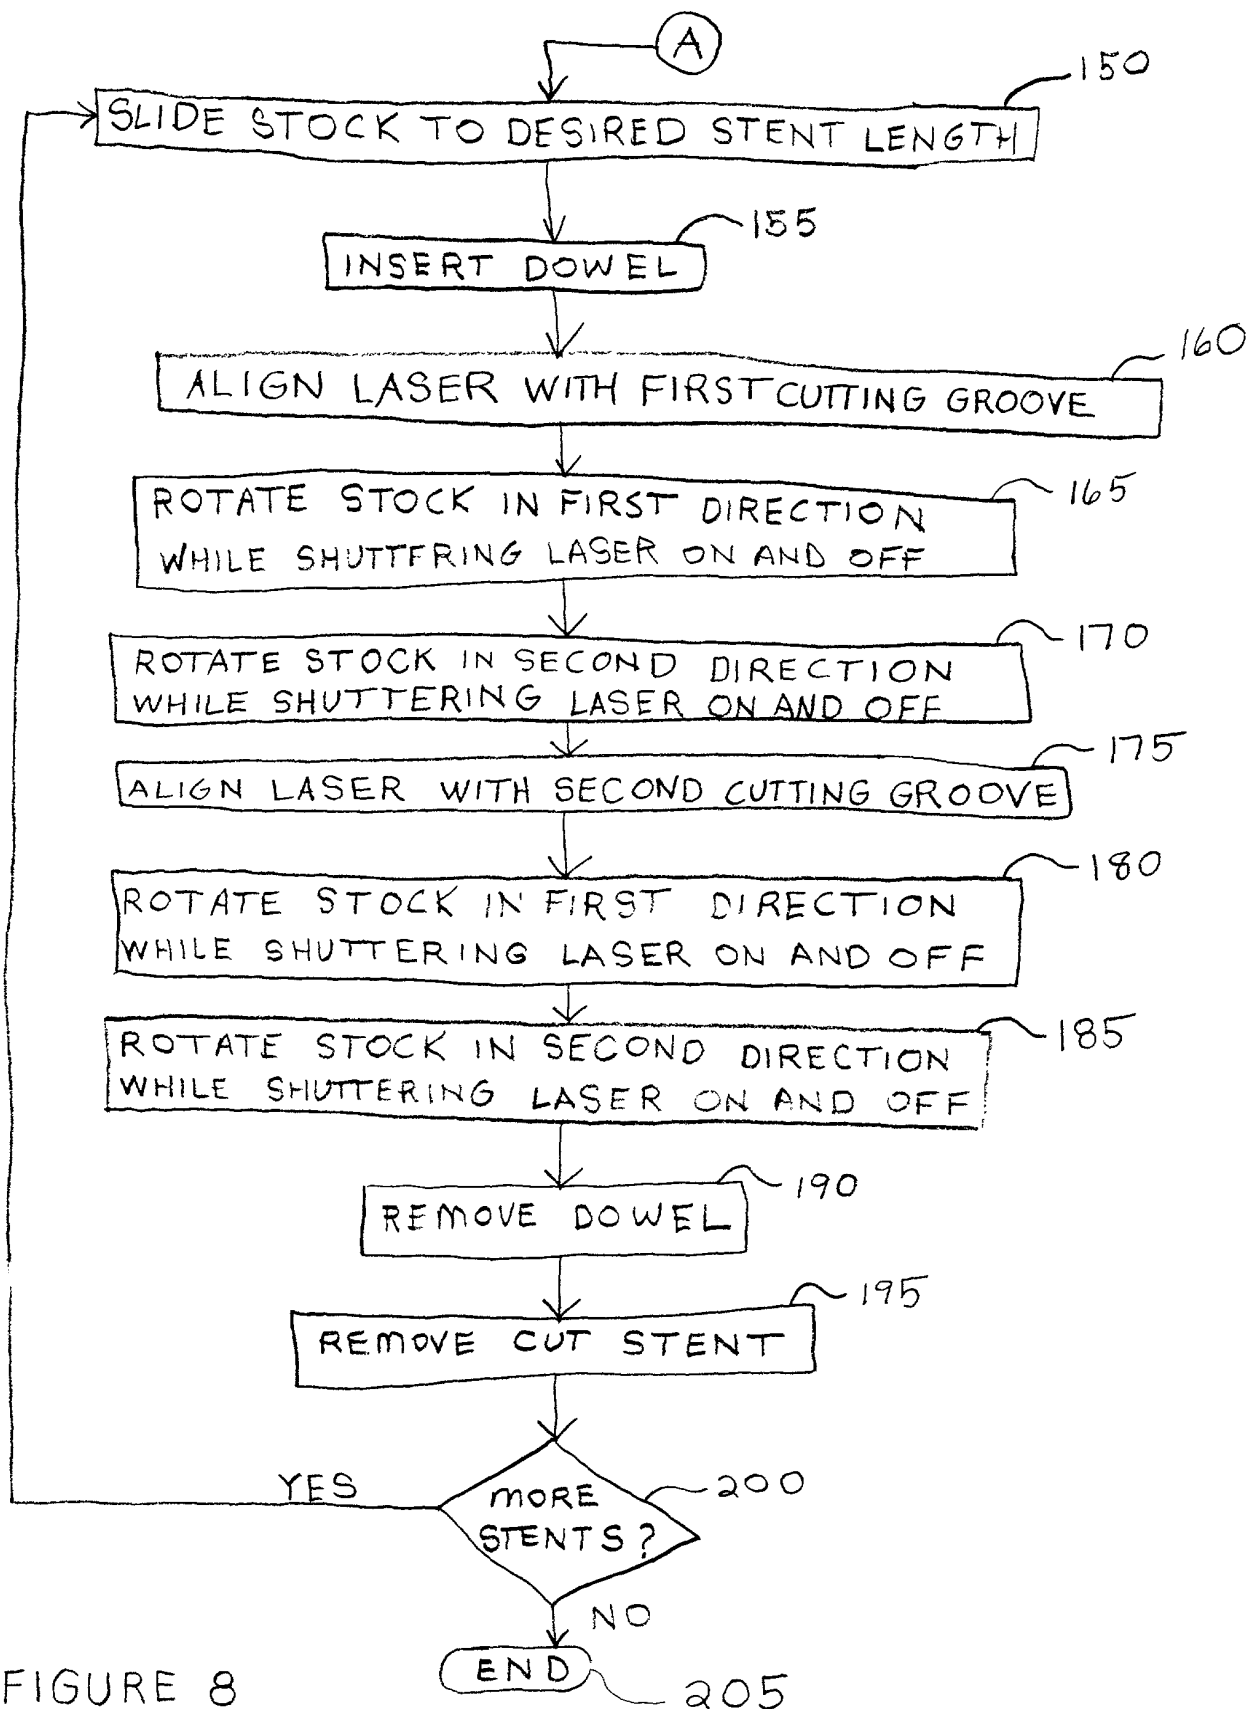 A
150
SLIDE STOCK TO DESIRED STENT LENGTH
155
INSERT DOWEL
160
ALIGN LASER WITH FIRST CUTTING GROOVE
165
ROTATE STOCK IN FIRST DIRECTION
WHILE SHUTTERING LASER ON AND OFF
170
ROTATE STOCK IN SECOND DIRECTION
WHILE SHUTTERING LASER ON AND OFF
175
ALIGN LASER WITH SECOND CUTTING GROOVE
180
ROTATE STOCK IN FIRST DIRECTION
WHILE SHUTTERING LASER ON AND OFF
185
ROTATE STOCK IN SECOND DIRECTION
WHILE SHUTTERING LASER ON AND OFF
190
REMOVE DOWEL
195
REMOVE CUT STENT
YES
200
MORE
STENTS?
NO
END
205
FIGURE 8